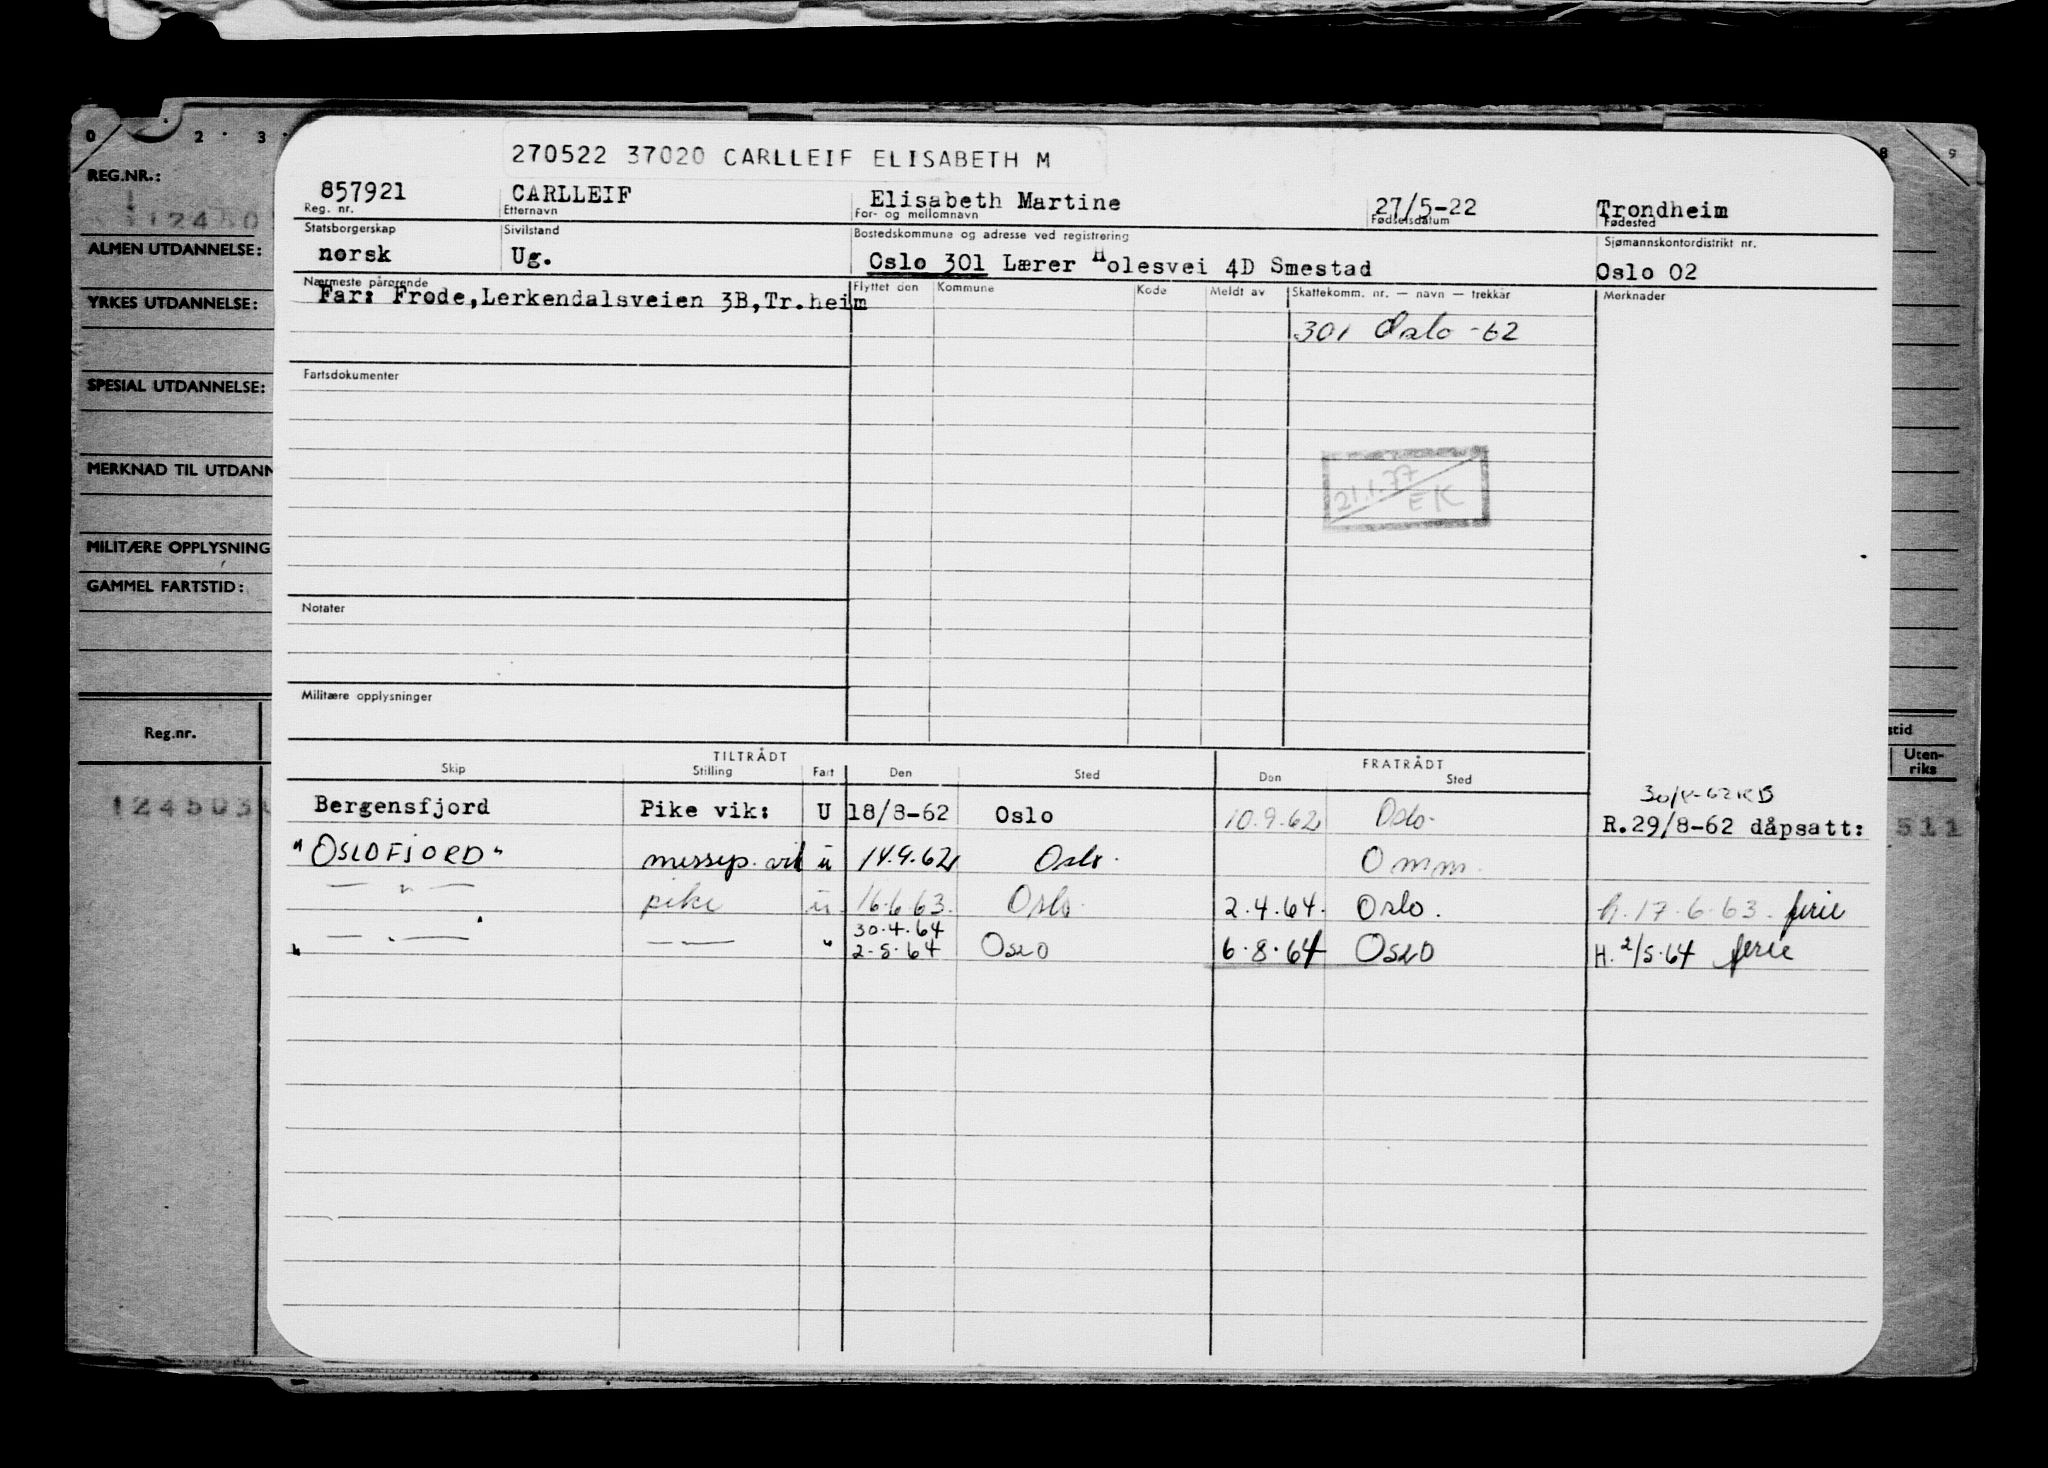 0 2 3 8 9
270522 37020 CARLLEIF ELISABETH M
REG.NR.:
857921 CARLLEIF Elisabeth Martine 27/5-22 Trondheim
Reg. nr. Etternavn For- og mellomnavn Fødselsdatum Fødested
Statsborgerskap Sivilstand Bostedskommune og adresse ved registrering Sjømannskontordistrikt nr.
ALMEN UTDANNELSE:
norsk Ug. Oslo 301 Lærer Holesvei 4D Smestad Oslo 02
Nærmeste pårørende Flyttet den Kommune Kode Meldt av Skattekomm. nr. — navn — trekkår Merknader
Far: Frode,Lerkendalsveien 3B,Tr.heim
YRKES UTDANNELSE:
301 Oslo -62
Fartsdokumenter
SPESIAL UTDANNELSE:
MERKNAD TIL UTDANN
21.1.77
EK
MILITÆRE OPPLYSNING
GAMMEL FARTSTID:
Notater
Militære opplysninger
Reg.nr. stid
TILTRÅDT FRATRÅDT
Skip Stilling Fart Den Sted Den Sted
Uten-
riks
124503 511
Bergensfjord Pike vik: U 18/8-62 Oslo 10.9.62 Oslo.
R.29/8-62 dåpsatt:
"OSLOFJORD" messep. vik u 14.9.62 Oslo. Omm.
— " — pike u 16.6.63. Oslo. 2.4.64. Oslo. h.17.6.63. ferie
30.4.64
— " — — — " 2-5-64 OSLO 6.8.64 OSLO H. 2/5.64 ferie